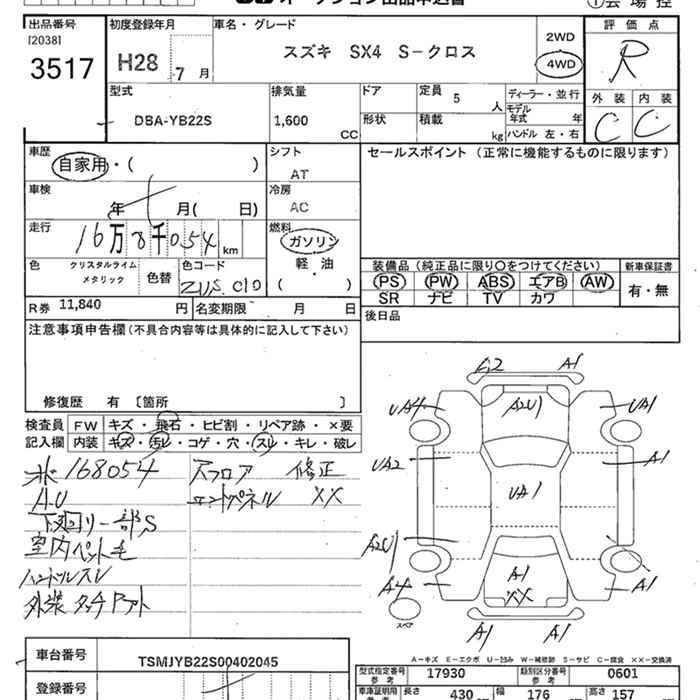 オークション出品申込書
①会場控
出品番号
[2038]
3517
初度登録年月
H28 - 7 月
車名・グレード
スズキ SX4 S-クロス
2WD
4WD
評価点
R
型式
DBA-YB22S
排気量
1,600 CC
ドア
形状
定員 5 人
積載 kg
ディーラー・並行
モデル年式 年
ハンドル 左・右
外装 C
内装 C
車歴
自家用・( )
シフト
AT
車検
年 月( 日)
冷房
AC
走行
16万8千054 km
燃料
ガソリン
軽・油
( )
セールスポイント (正常に機能するものに限ります)
色
クリスタルライム
メタリック
色替
色コード
ZUS C10
装備品 (純正品に限り○をつけてください)
PS PW ABS エアB AW
SR ナビ TV カワ
新車保証書
有・無
R券 11,840 円
名変期限 月 日
後日品
注意事項申告欄(不具合内容等は具体的に記入して下さい)
修復歴 有 〔箇所 〕
検査員
記入欄
FW キズ・飛石・ヒビ割・リペア跡・×要
内装 キズ・汚レ・コゲ・穴・スレ・キレ・破レ
168054
A.U
下廻リ一部S
室内ペット毛
ハンドルスレ
外装タッチアフト
スフロア 修正
エンドパネル XX
A1
UA4
A2U1
UA1
UA2
A1
UA1
A2U1
A1
XX
A4
A1
スペア
A1
A1
A-キズ E-エクボ U-凹み W-補修跡 S-サビ C-腐食 ××-交換済
車台番号
TSMJYB22S00402045
登録番号
型式指定番号 参考 17930
類別区分番号 参考 0601
車庫証明用 参考
長さ 430
幅 176
高さ 157